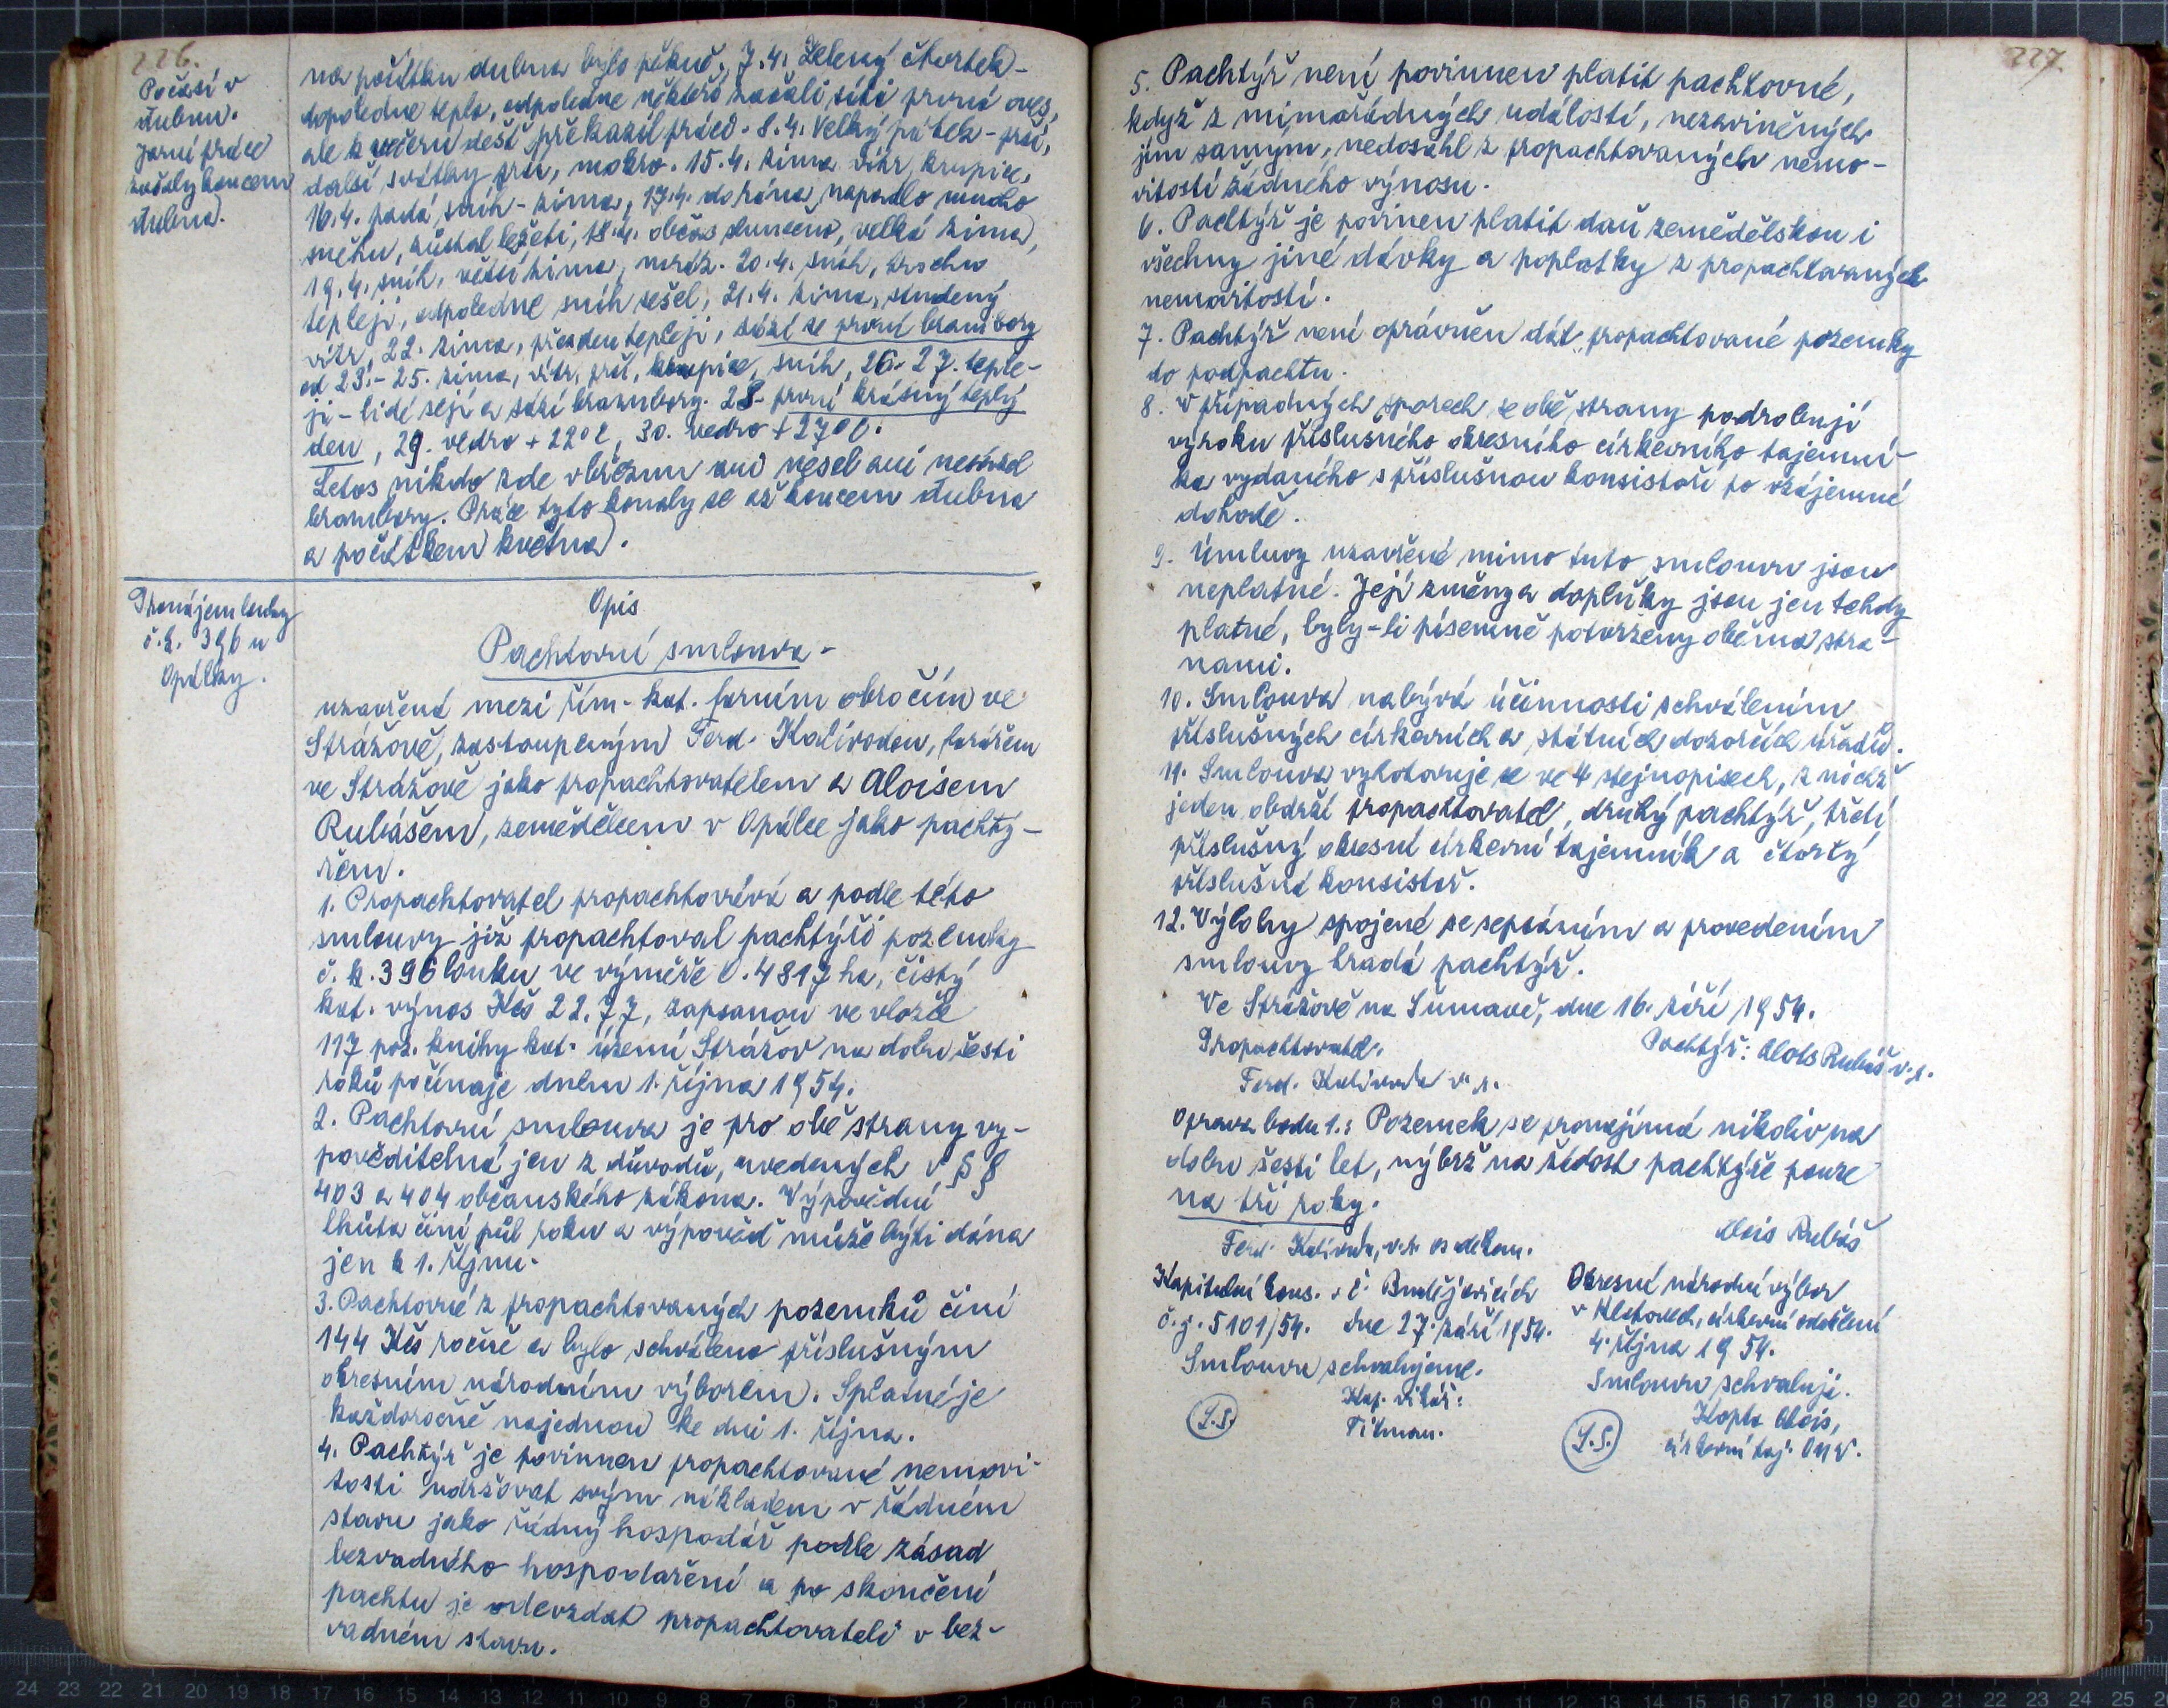 226.
Počasí v
dubnu.
Jarní práce
začaly koncem
dubna.
na počátku dubna bylo pěkně, 7.4. Zelený čtvrtek -
dopoledne teplo, odpoledne někteří začali síti první oves,
ale k večeru déšť překazil práci. 8.4. Velký pátek - prší,
další svátky prší, mokro. 15.4. zima, vítr, krupice,
16.4. padá sníh - zima, 17.4. do rána napadlo mnoho
sněhu, zůstal ležeti, 18.4. občas slunečno, velká zima,
19.4. sníh, větší zima, mráz. 20.4. sníh, trochu
tepleji, odpoledne sníh sešel, 21.4. zima, studený
vítr, 22. zima, přes den tepleji, sází se první brambory
od 23.-25. zima, vítr, prší, krupice, sníh, 26.-27. teple-
ji - lidé sejí a sází brambory. 28. první krásný teplý
den, 29. vedro + 22°C, 30. vedro + 27°C.
Letos nikdo zde v březnu ani nesel ani nesázel
brambory. Práce tyto konaly se až koncem dubna
a počátkem května.
Pronájem louky
č.k. 396 u
Opálky.
Opis
Pachtovní smlouva -
uzavřená mezi řím.-kat. farním obročím ve
Strážově, zastoupeným Ferd. Kalivodou, farářem
ve Strážově jako propachtovatelem a Aloisem
Rubášem, zemědělcem v Opálce jako pachtý-
řem.
1. Propachtovatel propachtovává a podle této
smlouvy již propachtoval pachtýři pozemky
č. k. 396 louku ve výměře 0.4817 ha, čistý
kat. výnos Kčs 22.77, zapsanou ve vložce
117 poz. knihy kat. území Strážov na dobu šesti
roků počínaje dnem 1. října 1954.
2. Pachtovní smlouva je pro obě strany vy-
pověditelná jen z důvodů, uvedených v §§
403 a 404 občanského zákona. Výpovědní
lhůta činí půl roku a výpověď může býti dána
jen k 1. říjnu.
3. Pachtovné z propachtovaných pozemků činí
144 Kčs ročně a bylo schváleno příslušným
okresním národním výborem. Splatné je
každoročně najednou ke dni 1. října.
4. Pachtýř je povinnen propachtované nemovi-
tosti udržovat svým nákladem v řádném
stavu jako řádný hospodář podle zásad
bezvadného hospodaření a po skončení
pachtu je odevzdat propachtovateli v bez-
vadném stavu.
227
5. Pachtýř není povinnen platit pachtovné,
když z mimořádných událostí, nezaviněných
jím samým, nedosáhl z propachtovaných nemo-
vitostí žádného výnosu.
6. Pachtýř je povinen platit daň zemědělskou i
všechny jiné dávky a poplatky z propachtovaných
nemovitostí.
7. Pachtýř není oprávněn dát propachtované pozemky
do podpachtu.
8. V případných sporech se obě strany podrobují
výroku příslušného okresního církevního tajemní-
ka vydaného s příslušnou konsistoří po vzájemné
dohodě.
9. Úmluvy uzavřené mimo tuto smlouvu jsou
neplatné. Její změny a doplňky jsou jen tehdy
platné, byly-li písemně potvrzeny oběma stra-
nami.
10. Smlouva nabývá účinnosti schválením
příslušných církevních a státních dozorčích úřadů.
11. Smlouva vyhotovuje se ve 4 stejnopisech, z nichž
jeden obdrží propachtovatel, druhý pachtýř, třetí
příslušný okresní církevní tajemník a čtvrtý
příslušná konsistoř.
12. Výlohy spojené se sepsáním a provedením
smlouvy hradí pachtýř.
Ve Strážově na Šumavě, dne 16. září 1954.
Propachtovatel: Pachtýř: Alois Rubáš v.r.
Ferd. Kalivoda v.r.
Oprava bodu 1.: Pozemek se pronajímá nikoliv na
dobu šesti let, nýbrž na žádost pachtýře pouze
na tři roky.
Alois Rubáš
Ferd. Kalivoda, v.r. os. děkan.
Kapitulní kons. v Č. Budějovicích
č.j. 5101/54. dne 27. září 1954.
Smlouvu schvalujeme.
Kap. vikář:
L.S. Titman.
Okresní národní výbor
v Klatovech, církevní oddělení
4. října 1954.
Smlouvu schvaluji.
Kopta Alois,
L.S. církevní taj. ONV.